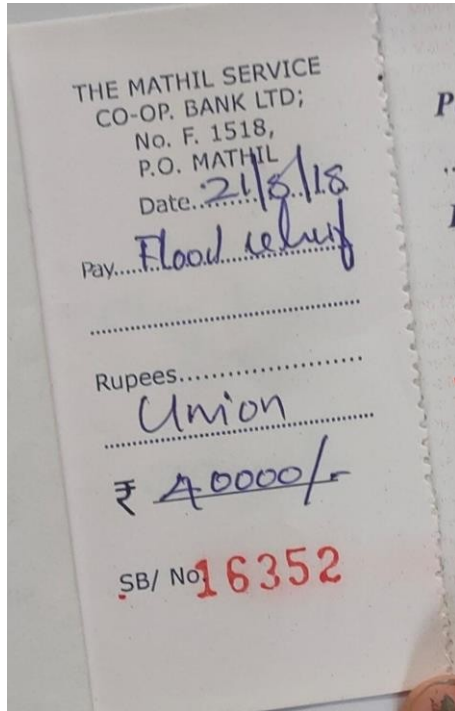 THE MATHIL SERVICE
CO-OP. BANK LTD;
No. F. 1518,
P.O. MATHIL
Date..21/8/18
Pay....Flood relief
Rupees......................
Union
₹ 40000/-
SB/ No. 16352
P